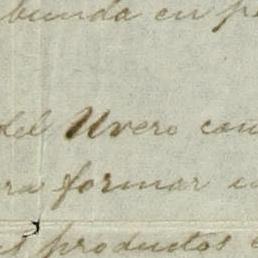 bunda en pe
del Uvero con
ra formar
us productos e